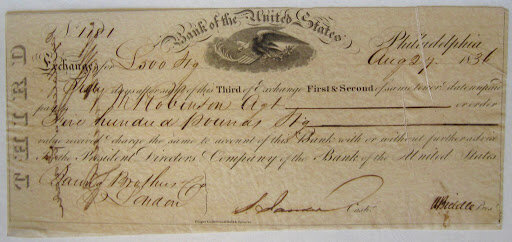 THIRD
No 1101
Bank of the United States
Philadelphia
Exchange for £500 Stg Aug 27. 1836
Sixty days after sight of this Third of Exchange First & Second of same tenor & date unpaid
pay J. M. Robinson Agt or order
Five hundred Pounds Stg
value received & charge the same to account of this Bank with or without further advice
To the President Directors & Company of the Bank of the United States
Baring Brothers & Co
London
Cashr.
N Biddle Prest.